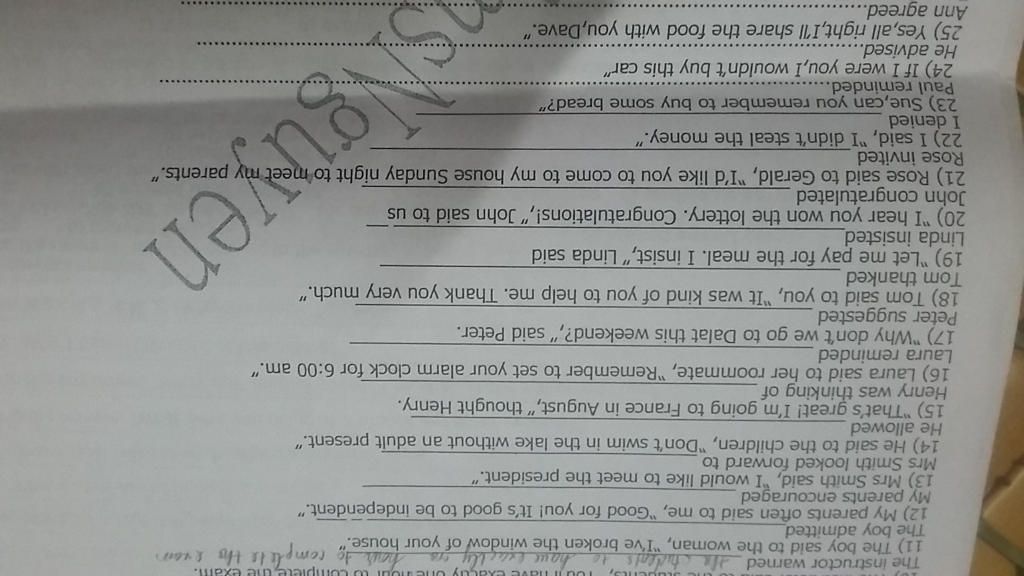 to the students, "You'll have exactly one hour to complete the exam.
The instructor warned the students to have exactly to complete the exam
11) The boy said to the woman, "I've broken the window of your house."
The boy admitted
12) My parents often said to me, "Good for you! It's good to be independent."
My parents encouraged
13) Mrs Smith said, "I would like to meet the president."
Mrs Smith looked forward to
14) He said to the children, "Don't swim in the lake without an adult present."
He allowed
15) "That's great! I'm going to France in August," thought Henry.
Henry was thinking of
16) Laura said to her roommate, "Remember to set your alarm clock for 6:00 am."
Laura reminded
17) "Why don't we go to Dalat this weekend?," said Peter.
Peter suggested
18) Tom said to you, "It was kind of you to help me. Thank you very much."
Tom thanked
19) "Let me pay for the meal. I insist," Linda said
Linda insisted
20) "I hear you won the lottery. Congratulations!," John said to us
John congratulated
21) Rose said to Gerald, "I'd like you to come to my house Sunday night to meet my parents."
Rose invited
22) I said, "I didn't steal the money."
I denied
23) Sue,can you remember to buy some bread?"
Paul reminded
24) If I were you,I wouldn't buy this car"
He advised
25) Yes,all right,I'll share the food with you,Dave."
Ann agreed
nsNguyen